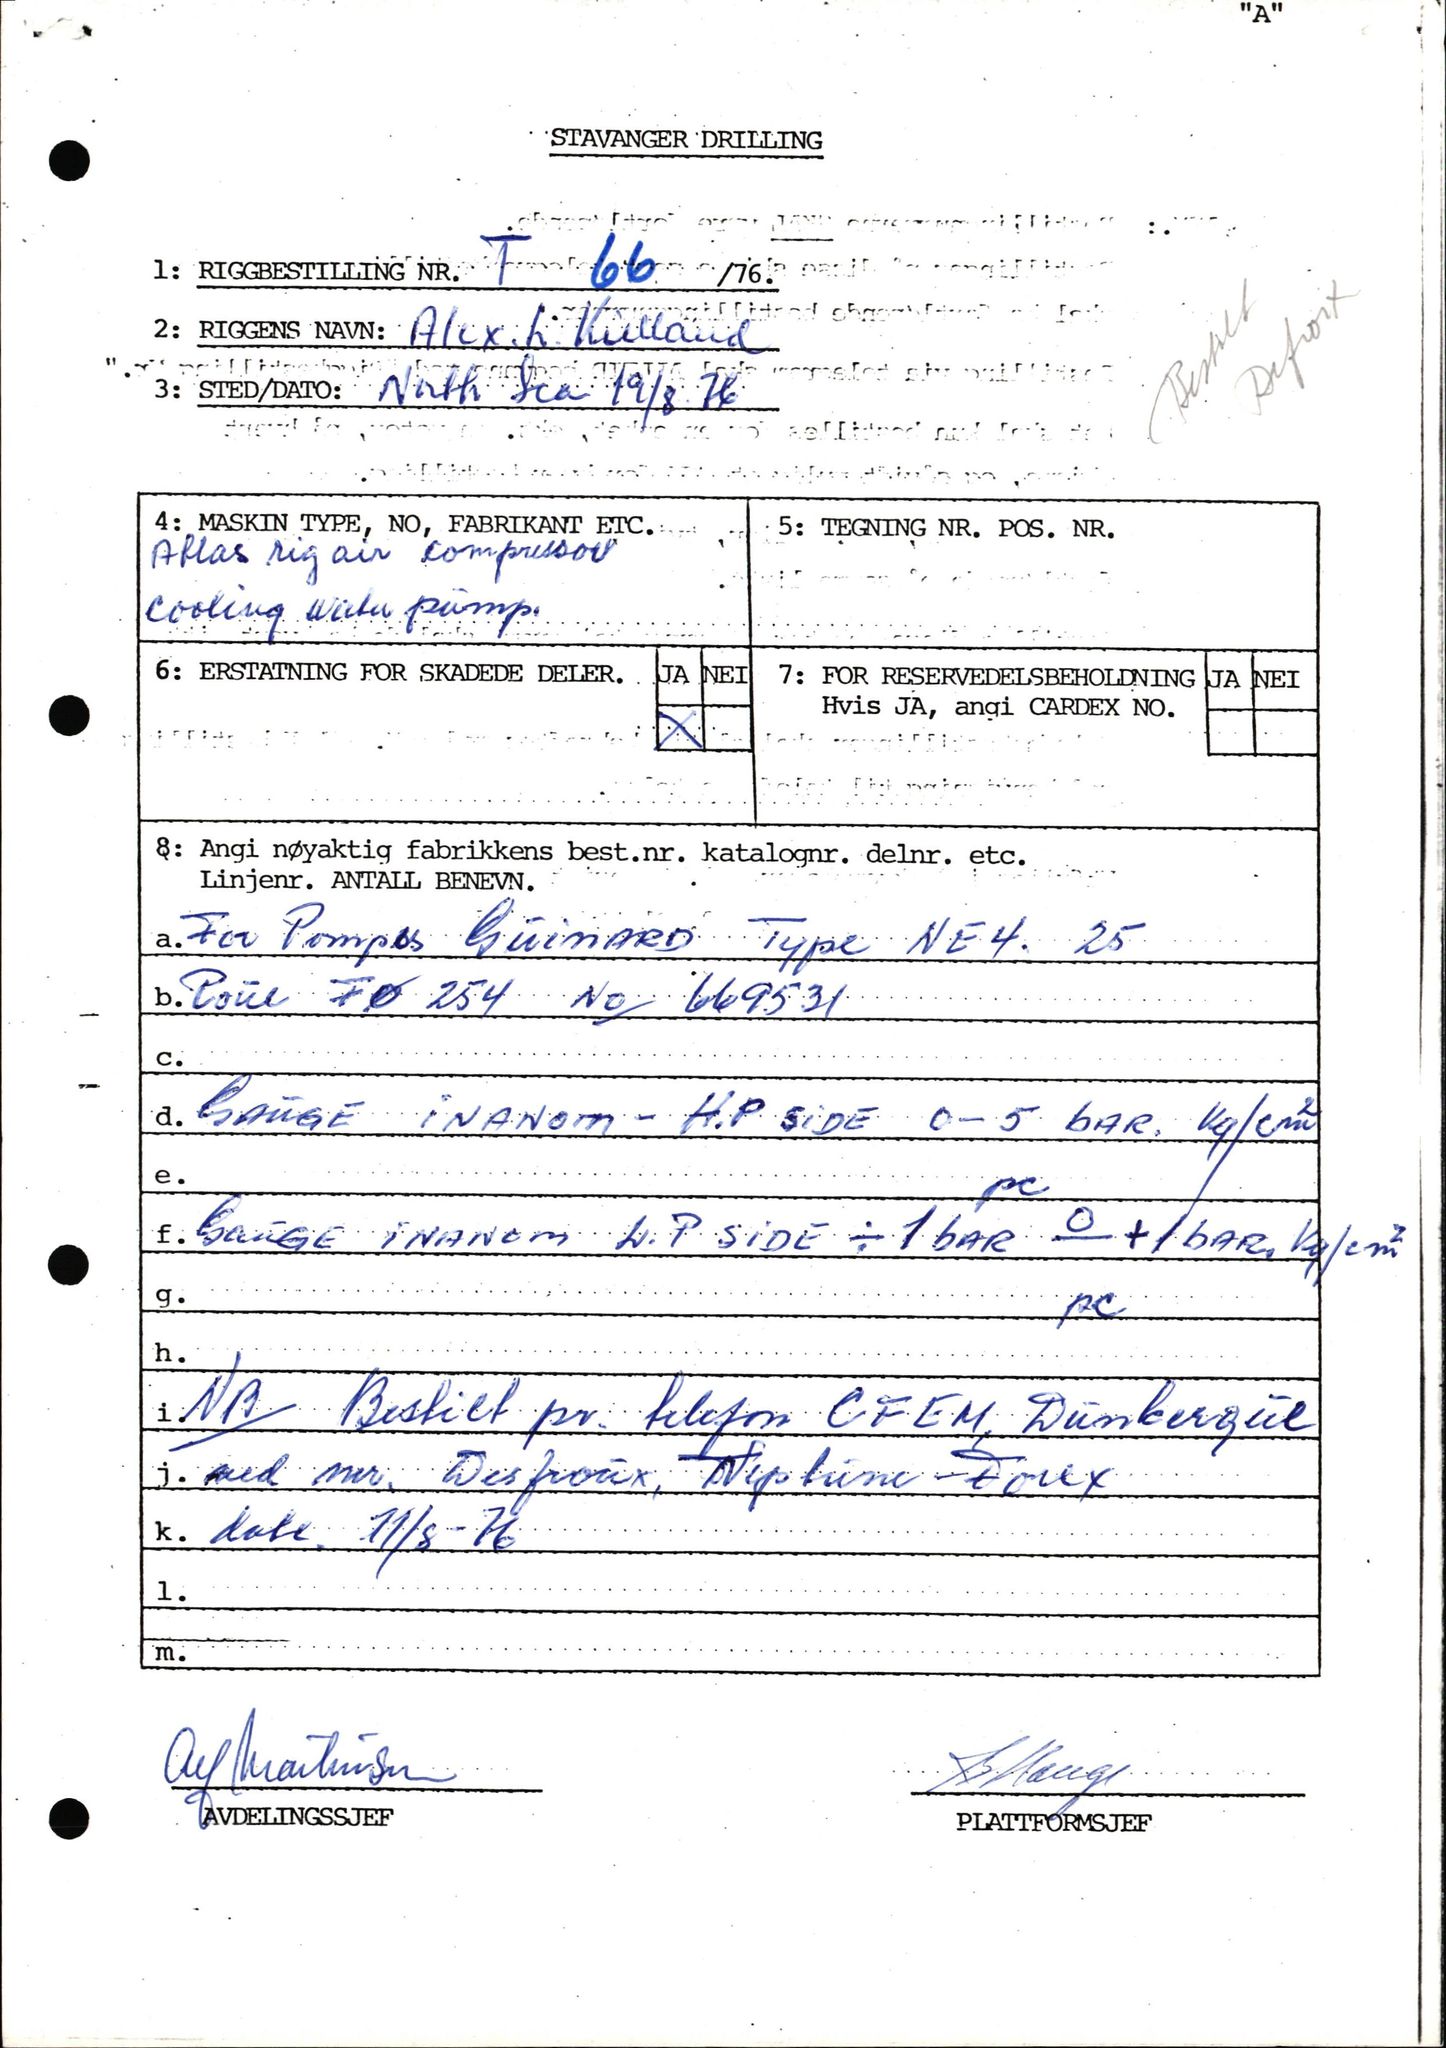 "A"
STAVANGER DRILLING
1: RIGGBESTILLING NR. T 66 /76.
2: RIGGENS NAVN: Alex. L. Kielland
3: STED/DATO: North Sea 19/8 76
Bestilt
4: MASKIN TYPE, NO, FABRIKANT ETC.
Atlas rig air compressor
cooling water pump.
5: TEGNING NR. POS. NR.
6: ERSTATNING FOR SKADEDE DELER. JA NEI
X
7: FOR RESERVEDELSBEHOLDNING JA NEI
Hvis JA, angi CARDEX NO.
8: Angi nøyaktig fabrikkens best.nr. katalognr. delnr. etc.
Linjenr. ANTALL BENEVN.
a. For Pumps GUINARD Type NE4. 25
b. 254 No 669531
c.
d. GAUGE INANOM - H.P SIDE 0-5 BAR. Kg/cm²
e. pc
f. GAUGE INANOM L.P SIDE ÷ 1 BAR 0 + 1 BAR. Kg/cm²
g. pc
h.
i. NB Bestilt pr. telefon CFEM, Dunkerque
j. ved mr. Desfroux, Neptune - Forex
k. date. 11/8-76
l.
m.
AVDELINGSSJEF
PLATTFORMSJEF